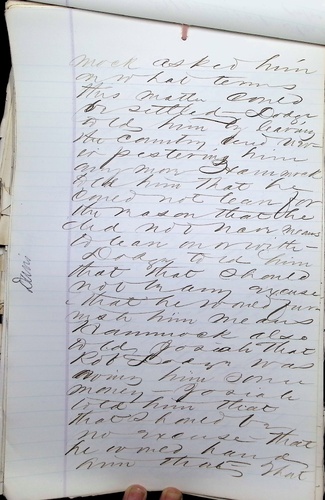 mock asked him
on what terms
this matter could
be settled Dodge
told him by leaving
the country and not
pestering him
any mor Hammock
told him that he
could not lean for
the reason that he
did not have means
to lean on or with
Dodge told him
that that should
not be any excuse
that he would fur
nish him means
Hammock also
told Josiah that
Rob Dodge was
owing him some
money Josiah
told him that
that should be
no excuse that
he would hand
him that that
Davis